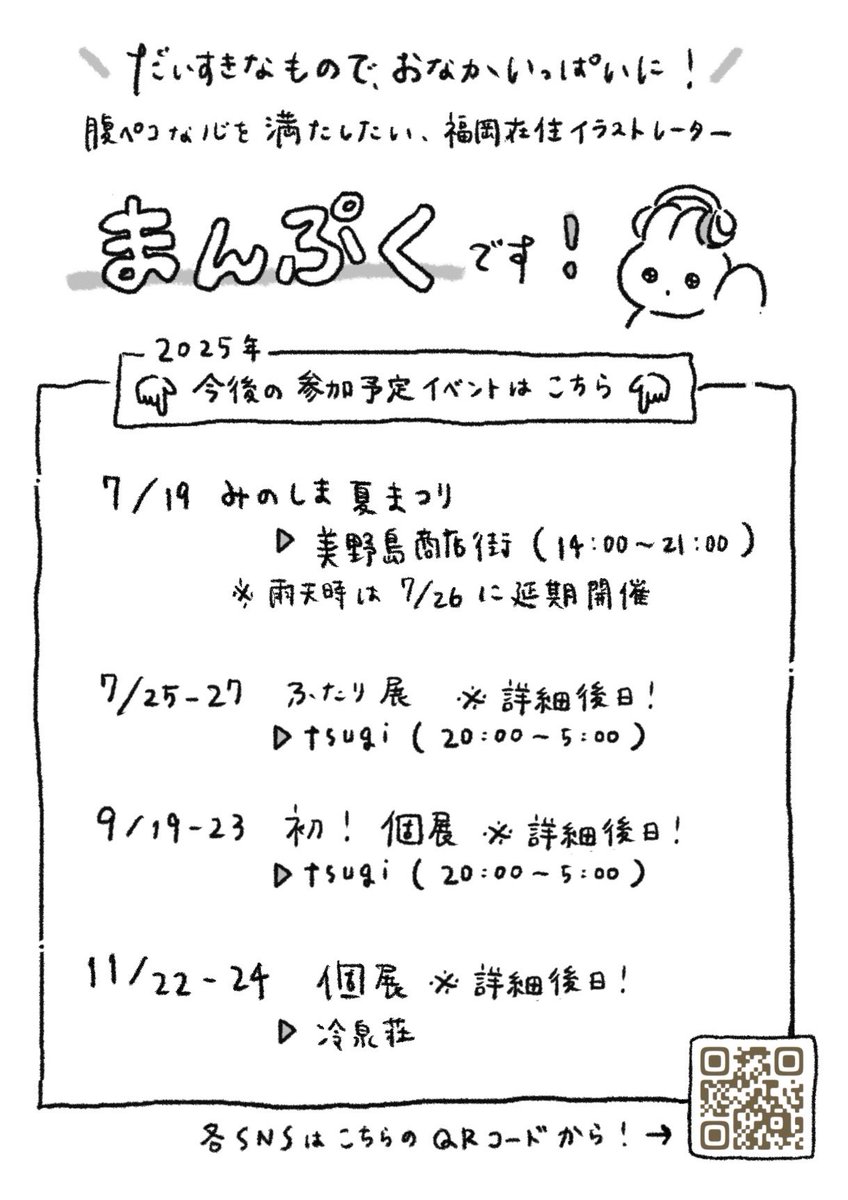 だいすきなもので、おなかいっぱいに！
腹ペコな心を満たしたい、福岡在住イラストレーター
まんぷくです！
2025年
今後の参加予定イベントはこちら
7/19 みのしま夏まつり
▷ 美野島商店街 (14:00～21:00)
※雨天時は 7/26 に延期開催
7/25-27 ふたり展 ※詳細後日！
▷ tsugi (20:00～5:00)
9/19-23 初！個展 ※詳細後日！
▷ tsugi (20:00～5:00)
11/22-24 個展 ※詳細後日！
▷ 冷泉荘
各SNSはこちらのQRコードから！→